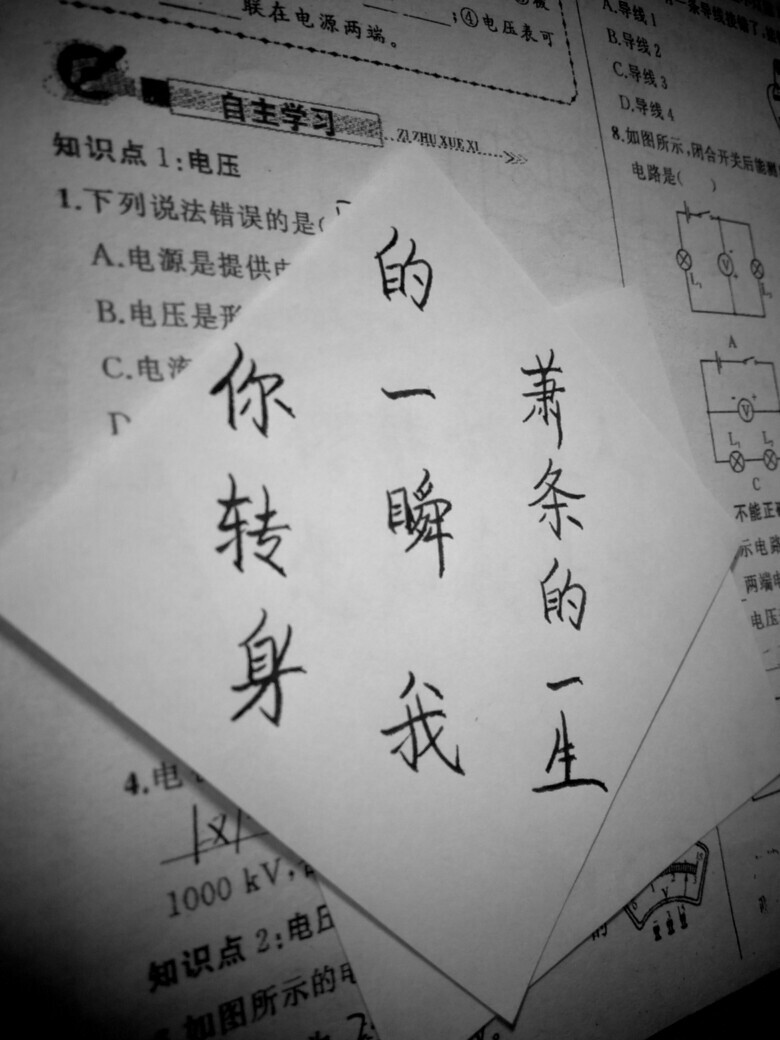 联在电源两端。
;④电压表可
自主学习
ZI ZHU XUE XI
知识点1:电压
1.下列说法错误的是(
A.电源是提供
B.电压是形
C.电流
D
4.电
1000 kV,
知识点2:电压
如图所示的电
你转身
的一瞬 我
萧条的一生
A.导线1
B.导线2
C.导线3
D.导线4
8.如图所示,闭合开关后能测
电路是( )
L₁
V
L₂
A
V
L₁
L₂
C
不能正确
示电路
两端电
电压